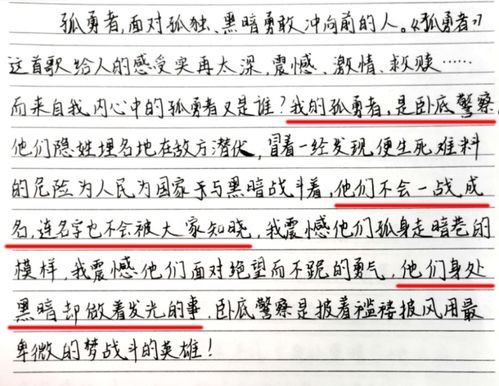 孤勇者，面对孤独、黑暗勇敢冲向前的人。《孤勇者》
这首歌给人的感受实再太深，震憾、激情、救赎……
而来自我内心中的孤勇者又是谁？我的孤勇者，是卧底警察，
他们隐姓埋名地在敌方潜伏，冒着一经发现便生死难料
的危险为人民为国家于与黑暗战斗着，他们不会一战成
名，连名字也不会被大家知晓，我震憾他们孤身走暗巷的
模样，我震憾他们面对绝望而不跪的勇气，他们身处
黑暗却做着发光的事，卧底警察是披着褴褛披风用最
卑微的梦战斗的英雄！